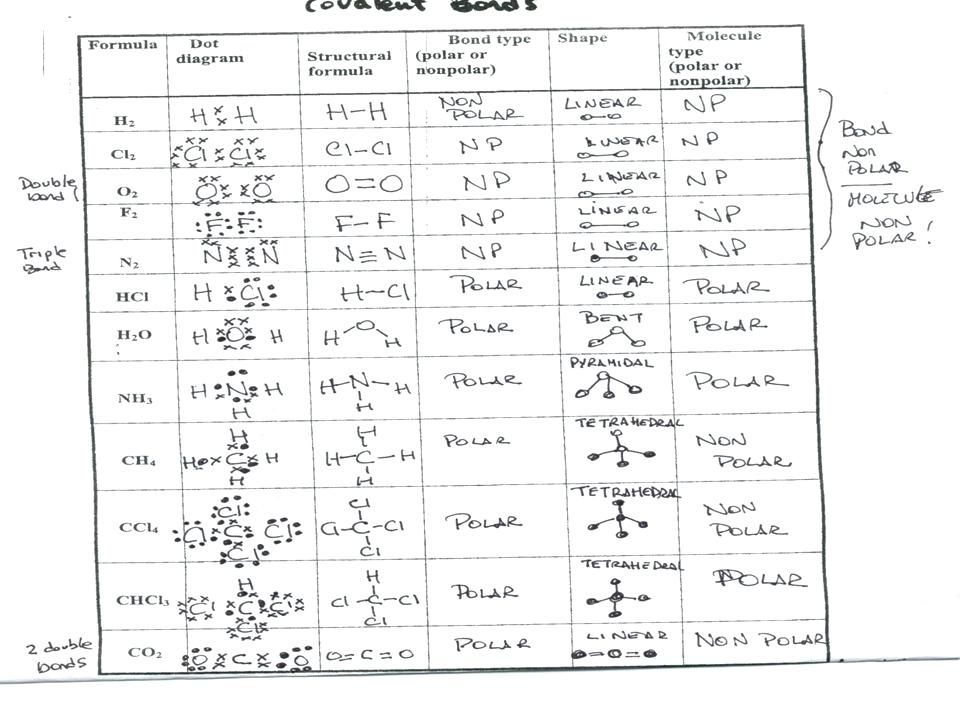 Covalent Bonds
Formula Dot diagram Structural formula Bond type (polar or nonpolar) Shape Molecule type (polar or nonpolar)
H₂ H H H–H NON POLAR LINEAR NP
Cl₂ Cl Cl Cl–Cl NP LINEAR NP
Double bond O₂ O O O=O NP LINEAR NP
F₂ F F F–F NP LINEAR NP
Triple Bond N₂ N N N≡N NP LINEAR NP
Bond
Non
POLAR
MOLECULE
NON
POLAR!
HCl H Cl H–Cl POLAR LINEAR POLAR
H₂O H O H H O H POLAR BENT POLAR
NH₃ H N H H H–N–H H POLAR PYRAMIDAL POLAR
CH₄ H H C H H H H–C–H H POLAR TETRAHEDRAL NON POLAR
CCl₄ Cl Cl C Cl Cl Cl Cl–C–Cl Cl POLAR TETRAHEDRAL NON POLAR
CHCl₃ H Cl C Cl Cl H Cl–C–Cl Cl POLAR TETRAHEDRAL POLAR
2 double bonds CO₂ O C O O=C=O POLAR LINEAR NON POLAR